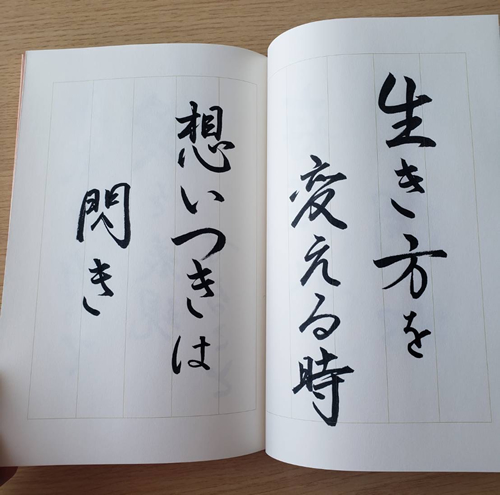 生き方を
変える時
想いつきは
閃き